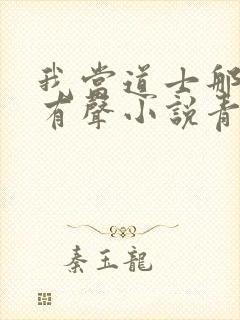 我當道士那
有聲小說青
秦玉龍